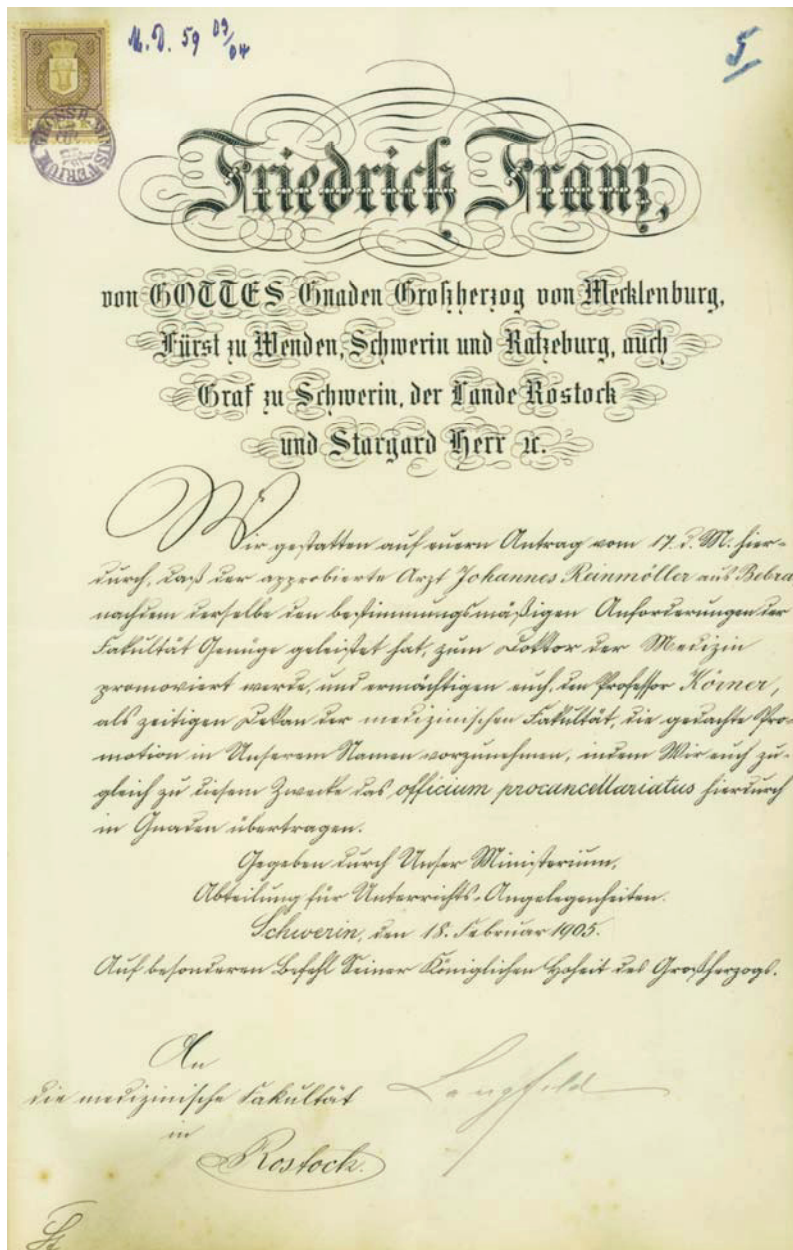 M. D. 59 09/04
5
3 3
GROSSH. MINISTERIUM
Friedrich Franz,
von GOTTES Gnaden Großherzog von Mecklenburg,
Fürst zu Wenden, Schwerin und Ratzeburg, auch
Graf zu Schwerin, der Lande Rostock
und Stargard Herr ꝛc.
Wir gestatten auf euern Antrag vom 17. d. M. hier-
durch, daß der approbierte Arzt Johannes Reinmöller aus Bebra
nachdem derselbe den bestimmungsmäßigen Anforderungen der
Fakultät Genüge geleistet hat, zum Doktor der Medizin
promoviert werde, und ermächtigen euch, den Professor Körner,
als zeitigen Dekan der medizinischen Fakultät, die gedachte Pro-
motion in Unserem Namen vorzunehmen, indem Wir euch zu-
gleich zu diesem Zwecke das officium procancellariatus hierdurch
in Gnaden übertragen.
Gegeben durch Unser Ministerium,
Abteilung für Unterrichts-Angelegenheiten.
Schwerin, den 18. Februar 1905.
Auf besonderen Befehl Seiner Königlichen Hoheit des Großherzogs.
An
die medizinische Fakultät
Langfeld
in
Rostock.